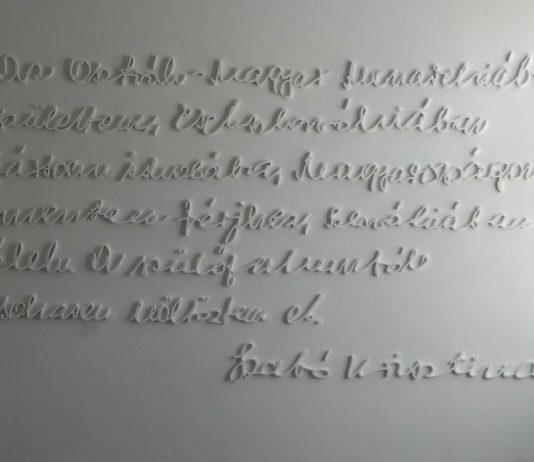 Az Osztrák-Magyar Monarchiáb
születtem, Csehszlovákiában
jártam iskolába, Magyarországon
mentem férjhez, Szlovákiában
élek. A szülőfalumból
sohasem költöztem el.
Szabó Krisztina